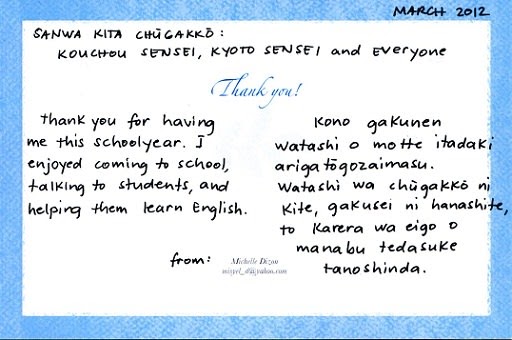 MARCH 2012
SANWA KITA CHŪGAKKŌ:
KOUCHOU SENSEI, KYOTO SENSEI and EVERYONE
Thank you!
Thank you for having
me this schoolyear. I
enjoyed coming to school,
talking to students, and
helping them learn English.
Kono gakunen
watashi o motte itadaki
arigatōgozaimasu.
Watashi wa chūgakkō ni
kite, gakusei ni hanashite,
to karera wa eigo o
manabu tedasuke
tanoshinda.
from:
Michelle Dizon